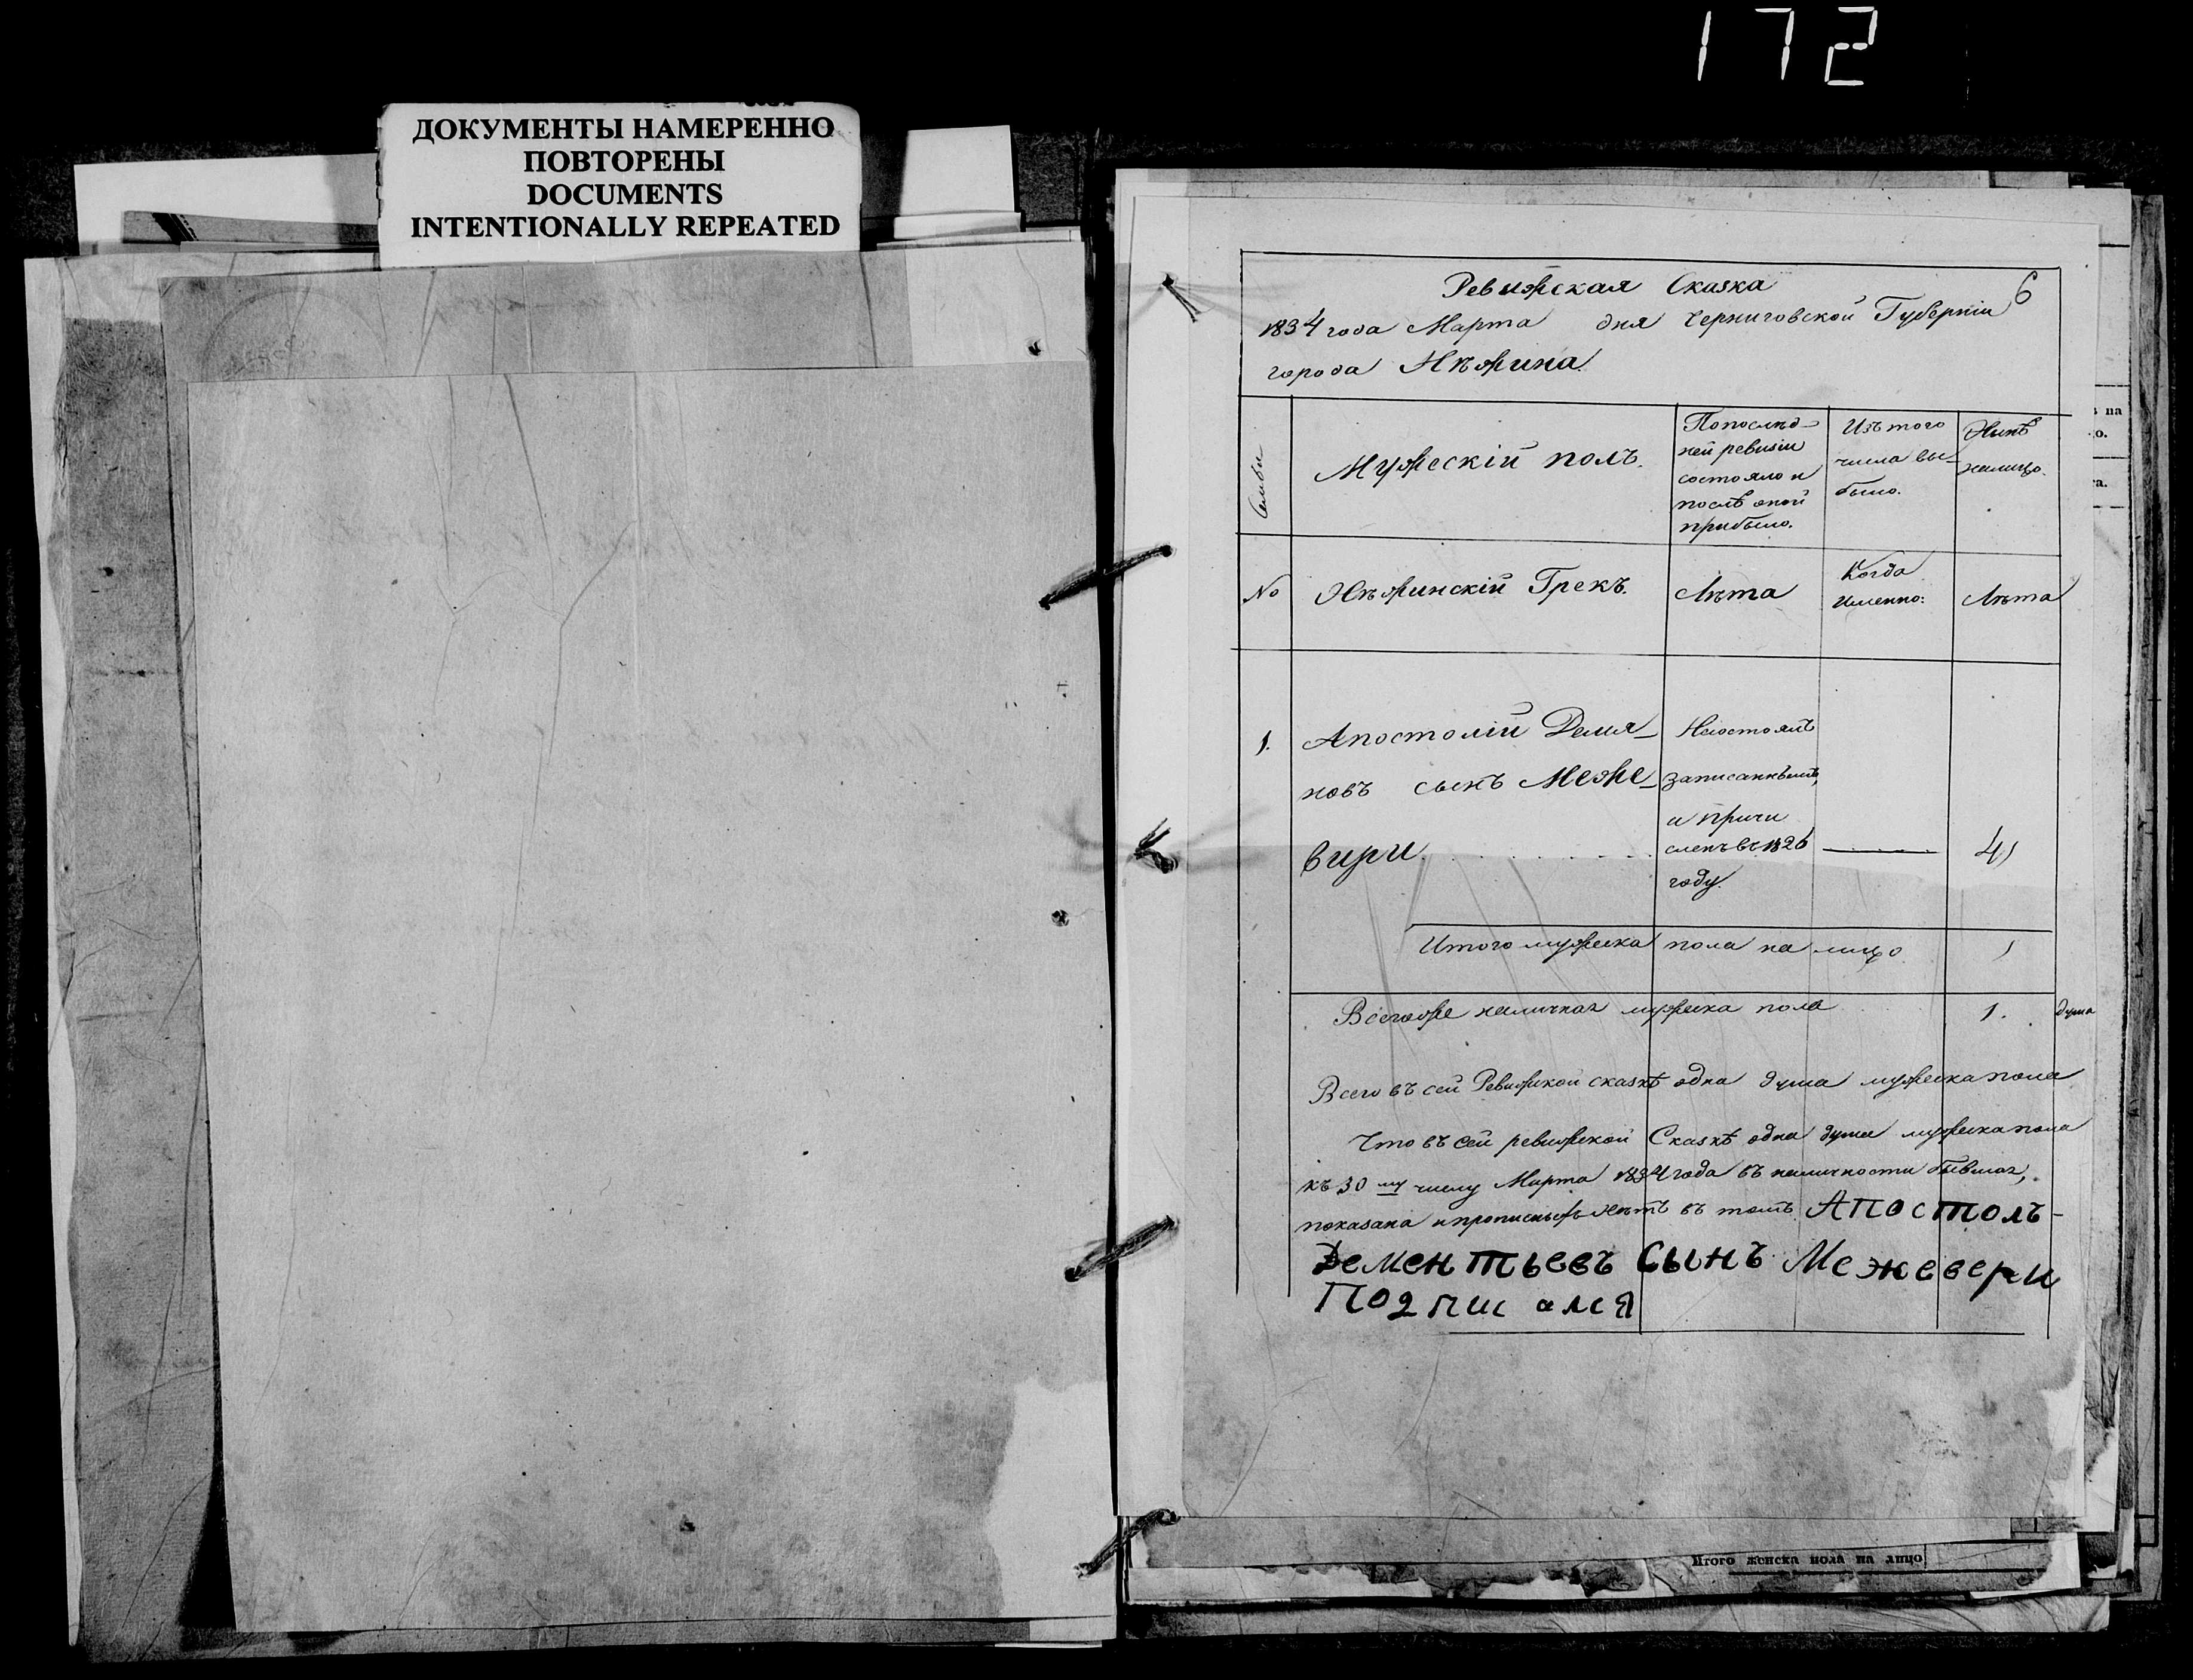 172
ДОКУМЕНТЫ НАМЕРЕННО
ПОВТОРЕНЫ
DOCUMENTS
INTENTIONALLY REPEATED
6
Ревижская Сказка
1834 года Марта дня Черниговской Губерніи
города Нѣжина
Семьи
Мужескій полъ.
Попослѣд-
ней ревизіи
состояло и
послѣ оной
прибыло.
Изъ того
числа вы-
было.
Нынѣ
налицо.
№
Нѣжинскій Грекъ.
Лѣта
Когда
именно:
Лѣта
1.
Апостолій Демя-
новъ сынъ Меже-
вири
Несостоялъ
записаннымъ,
и причи
сленъ въ 1826
году.
41
Итого мужеска пола на лицо 1
Всегоже наличныхъ мужеска пола 1. душа
Всего въ сей Ревижской сказкѣ одна душа мужеска пола
Что въ сей ревижской Сказкѣ одна душа мужеска пола
къ 30 му числу Марта 1834 года въ наличности бывшая,
показана и прописныхъ нѣтъ въ томъ Апостолъ-
Дементьевъ Сынъ Межевери
Подписался
на
о.
а.
Итого женска пола на лицо